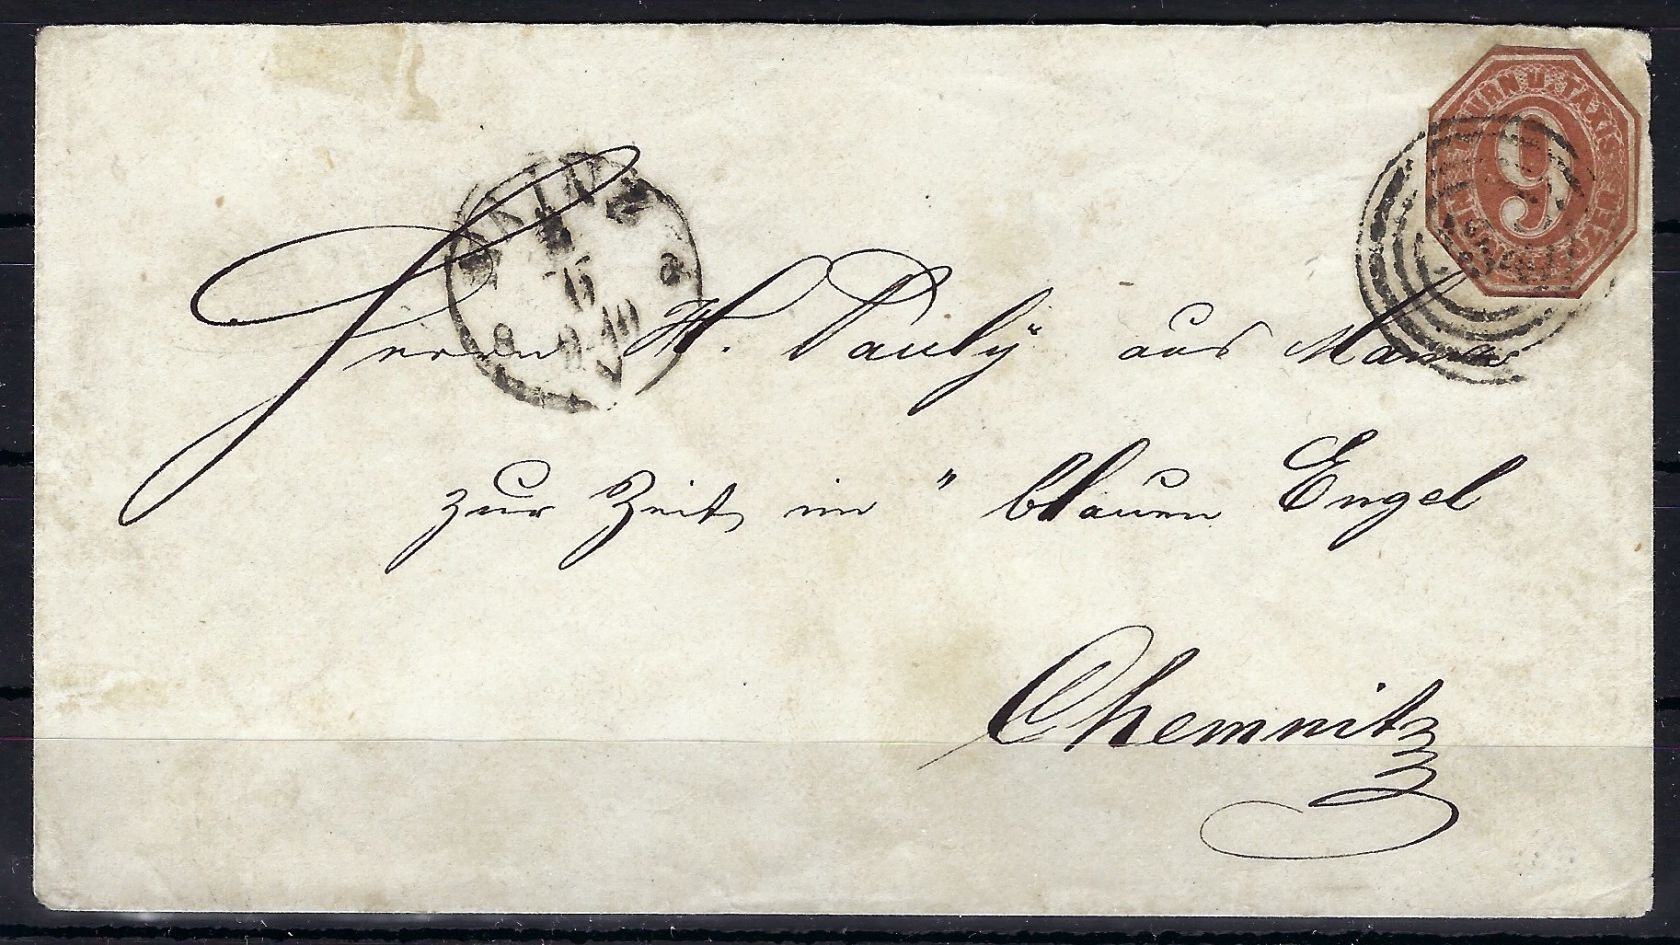 MAINZ
8 9-10
THURN U. TAXIS
9
Herrn H. Pauly aus Mainz
zur Zeit im "blauen Engel
Chemnitz